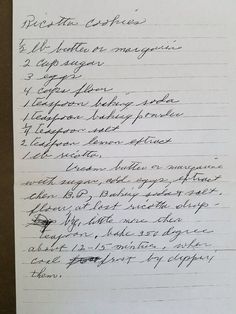 Ricotta cookies
1/2 lb butter or margarine
2 cup sugar
3 eggs
4 cups flour
1 teaspoon baking soda
1 teaspoon baking powder
1 teaspoon salt
2 teaspoon lemon extract
1 lb ricotta.
Cream butter or margarine
with sugar, add eggs, extract
then B.P, Baking soda & salt.
flour, at last ricotta drop -
by little more then
teaspoon, bake 350 degree
about 12-15 mintues, when
cool frost by dipping
them.